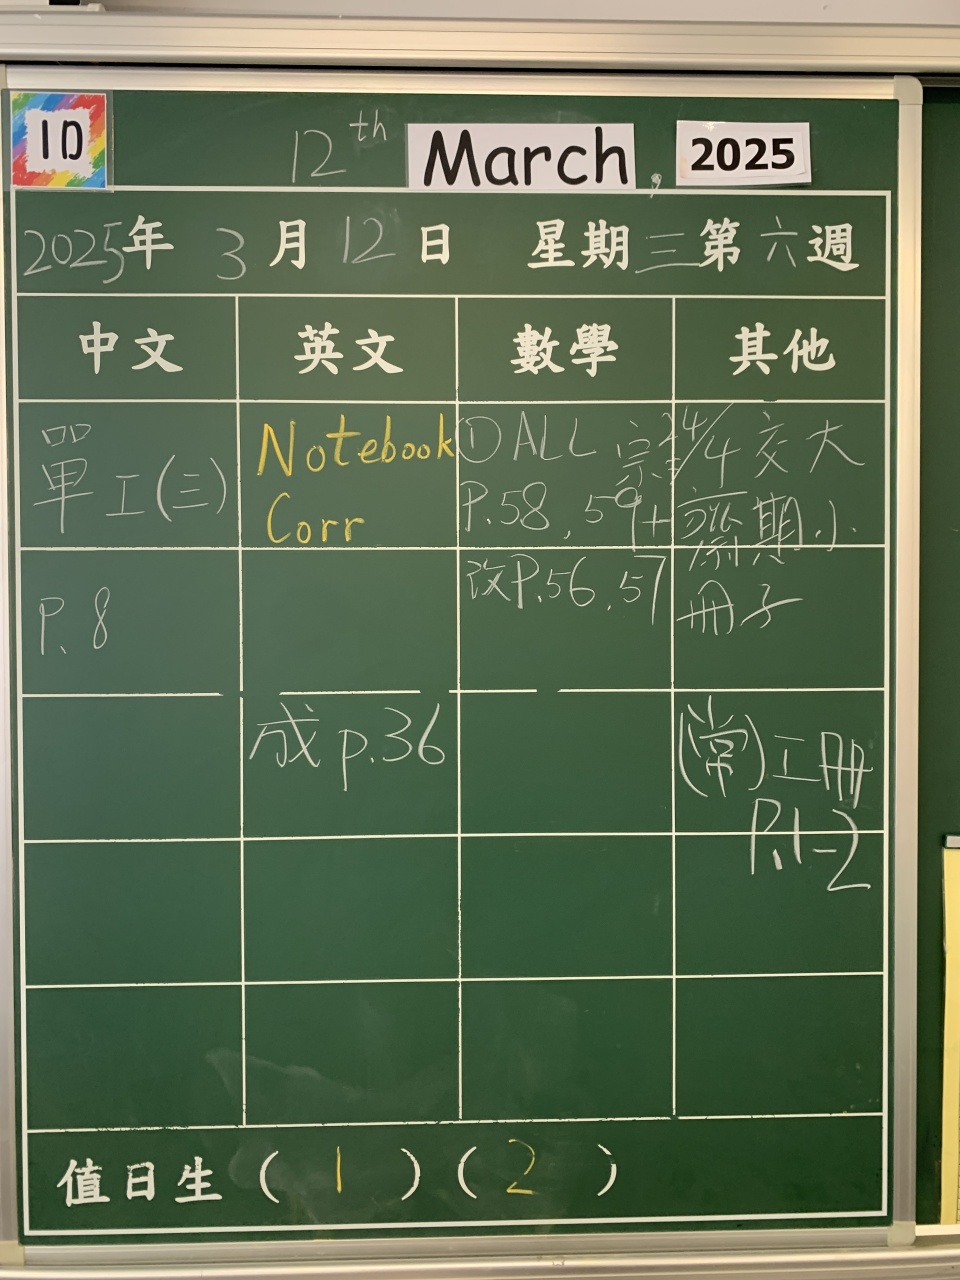 1D
12th March, 2025
2025年 3月12日 星期三第六週
中文 英文 數學 其他
單工(三)
P.8
Notebook
Corr
成 p.36
① ALL
P.58, 59+
改P.56,57
24/4 交大
期小
冊子
(常)工冊
P.1-2
值日生 (1) (2)